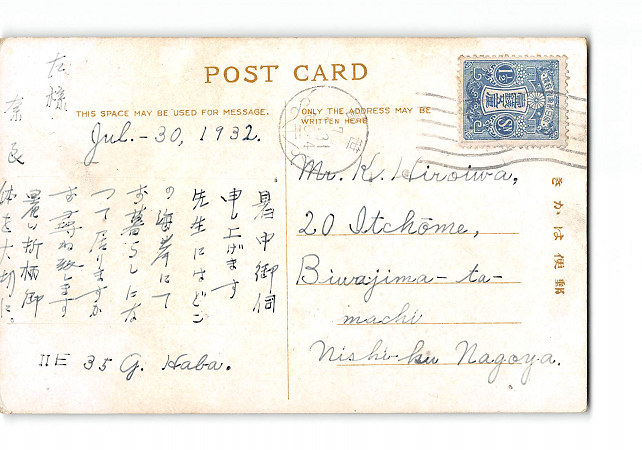 POST CARD
THIS SPACE MAY BE USED FOR MESSAGE.
ONLY THE ADDRESS MAY BE
WRITTEN HERE
Jul.-30, 1932.
暑中御伺
申し上げます
先生にはどこ
の海岸にて
お暮らしにな
つて居りますか
お尋ね致します
暑い折柄御
体を大切に。
奈良
IIE 35 G. Haba.
Mr. K. Hiroiwa,
20 Itchōme,
Biwajima-ta-
machi
Nishi-ku Nagoya.
きかは便郵
1½
SN